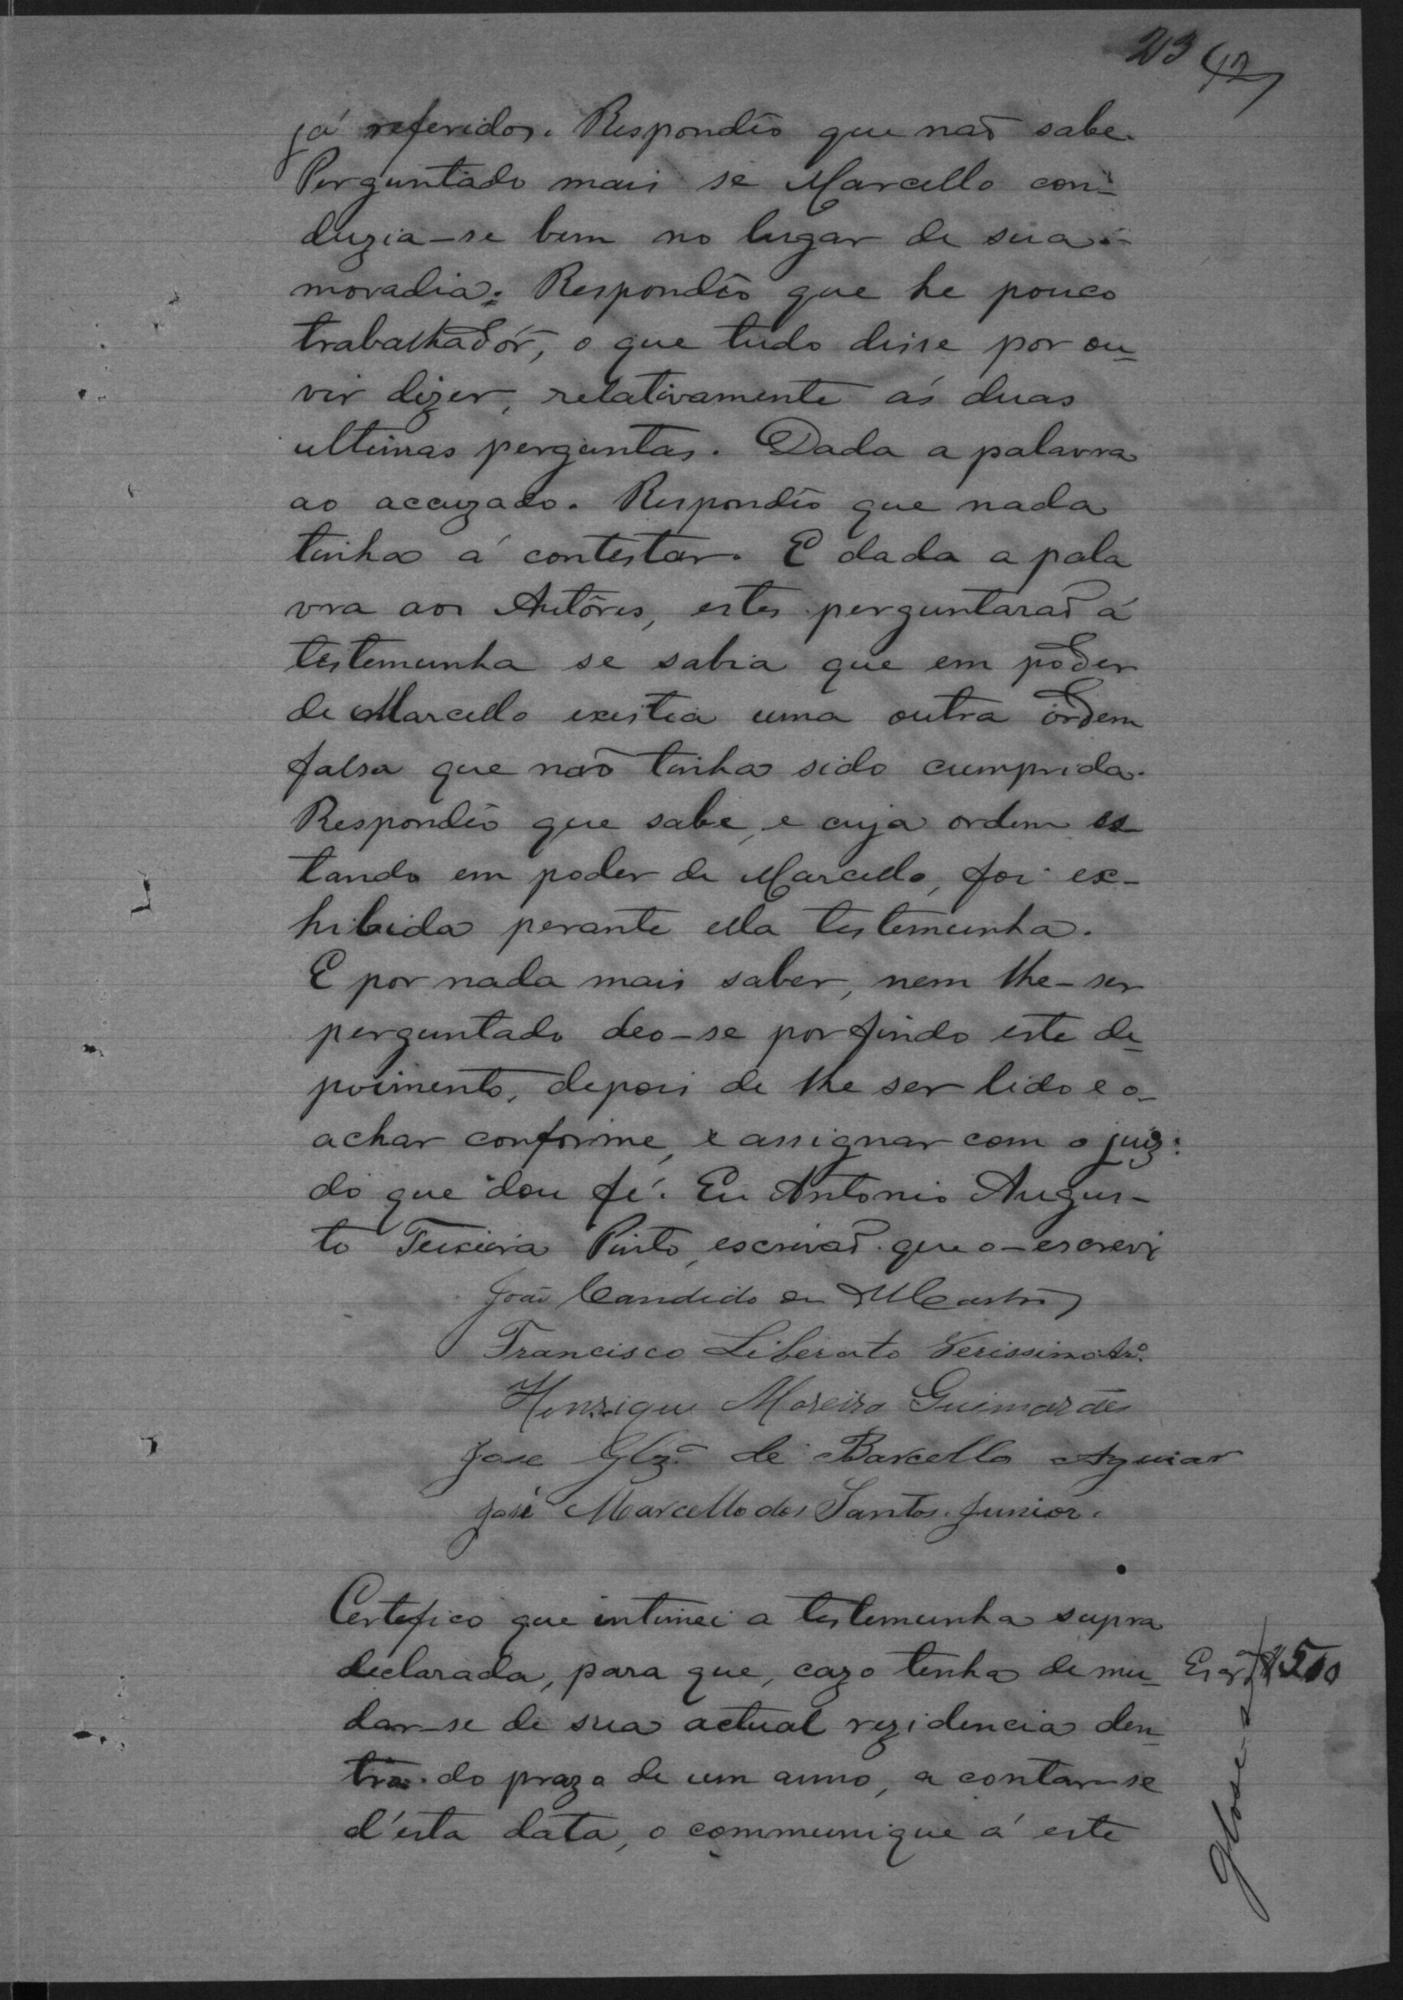 23 42
já referidos. Respondêo que naõ sabe.
Perguntado mais se Marcello con-
duzia-se bem no lugar de sua
moradia: Respondêo que he pouco
trabalhadôr, o que tudo disse por ou-
vir dizer, relativamente ás duas
ultimas perguntas. Dada a palavra
ao accuzado. Respondêo que nada
tinha á contestar. E dada a pala
vra aos Autôres, estes perguntaraõ á
testemunha se sabia que em poder
de Marcello existia uma outra ordem
falsa que não tinha sido cumprida.
Respondêo que sabe, e cuja ordem es-
tando em poder de Marcello, foi ex-
hibida perante ella testemunha.
E por nada mais saber, nem lhe-ser
perguntado deo-se por findo este de-
poimento, depois de lhe ser lido e o-
achar conforme, e assignar com o juiz:
do que dou fé. Eu Antonio Augus-
to Teixeira Pinto, escrivaõ que o-escrevi
João Candido de M Castro
Francisco Liberato Verissimo
Henrique Moreira Guimarães
Jose Glz. de Barcello Aguiar
José Marcello dos Santos Junior.
Certefico que intimei a testemunha supra
declarada, para que, cazo tenha de mu-
dar-se de sua actual rezidencia den-
tro do prazo de um anno, a contar-se
d'esta data, o communique á este
500